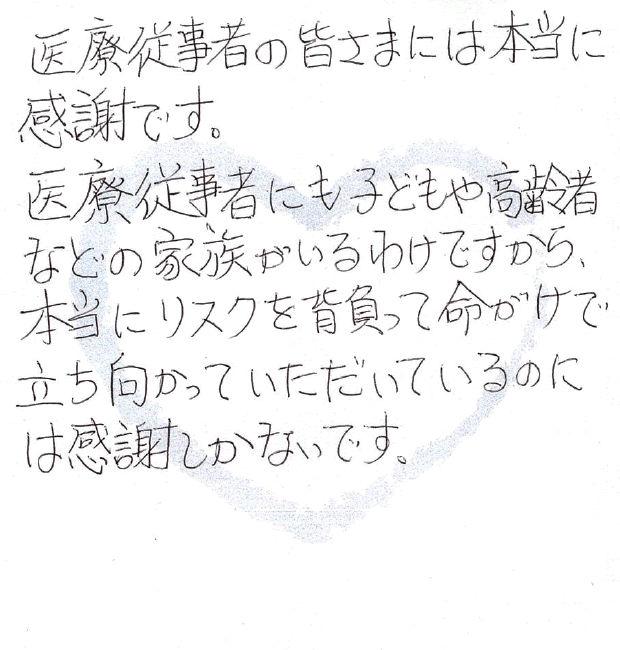 医療従事者の皆さまには本当に
感謝です。
医療従事者にも子どもや高齢者
などの家族がいるわけですから、
本当にリスクを背負って命がけで
立ち向かっていただいているのに
は感謝しかないです。